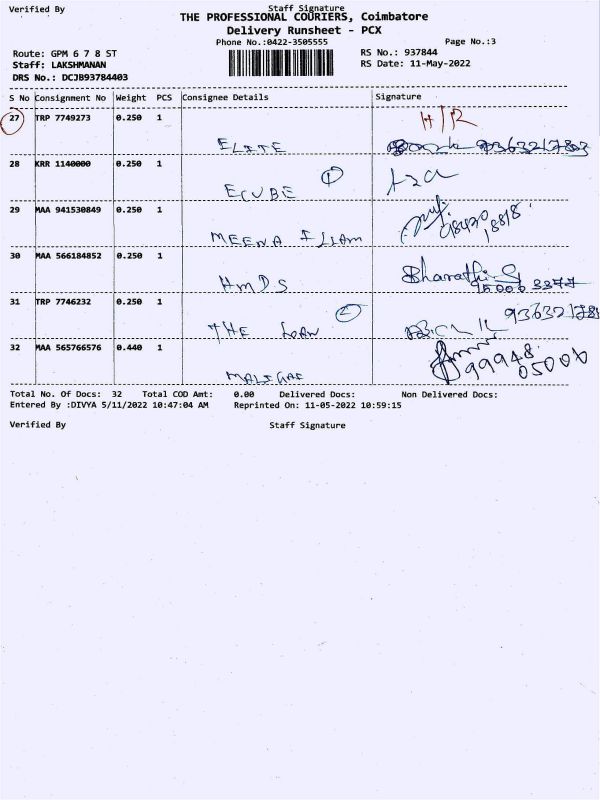 Verified By Staff Signature
THE PROFESSIONAL COURIERS, Coimbatore
Delivery Runsheet - PCX
Phone No.:0422-3505555 Page No.:3
Route: GPM 6 7 8 ST RS No.: 937844
Staff: LAKSHMANAN RS Date: 11-May-2022
DRS No.: DCJB93784403
S No Consignment No Weight PCS Consignee Details Signature
27 TRP 7749273 0.250 1 H/R
ELITE 9363217803
28 KRR 1140000 0.250 1
ECUBE 1
29 MAA 941530849 0.250 1
MEENA ILLAM 98420 18818
30 MAA 566184852 0.250 1
HMDS Bharathi G
31 TRP 7746232 0.250 1 2
THE LOAN
32 MAA 565766576 0.440 1 99948
MALIGAI 05000
Total No. Of Docs: 32 Total COD Amt: 0.00 Delivered Docs: Non Delivered Docs:
Entered By :DIVYA 5/11/2022 10:47:04 AM Reprinted On: 11-05-2022 10:59:15
Verified By Staff Signature